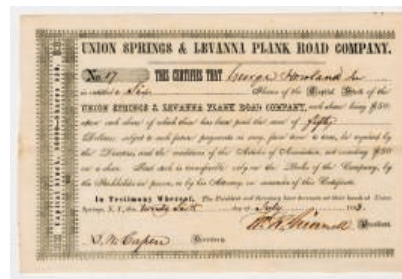 UNION SPRINGS & LEVANNA PLANK ROAD COMPANY.
No. 17 THIS CERTIFIES THAT George Howland
is entitled to Shares of the Capital Stock of the
UNION SPRINGS & LEVANNA PLANK ROAD COMPANY, each share being $50
upon each share of which there has been paid the sum of fifty
Dollars, subject to such future payments as may, from time to time, be required by
the Directors, and the conditions of the Articles of Association, not exceeding $50
on a share. Said stock is transferable only on the Books of the Company, by
the Stockholder in person, or by his Attorney, on surrender of this Certificate.
In Testimony Whereof, The President and Secretary have hereunto set their hands at Union
Springs, N. Y., this twenty day of July
President.
Secretary.